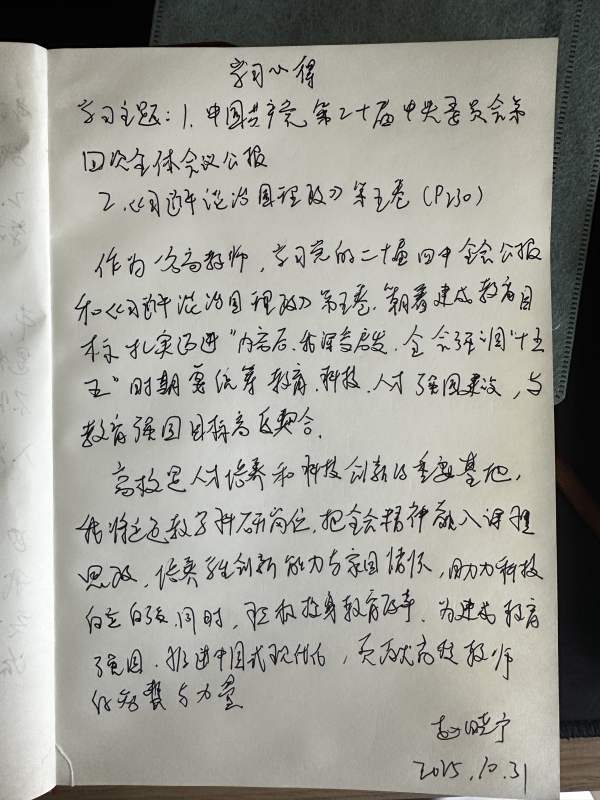 学习心得
学习主题：1. 中国共产党第二十届中央委员会第
四次全体会议公报
2.《习近平谈治国理政》第五卷（P230）
作为一名高教师，学习党的二十届四中全会公报
和《习近平谈治国理政》第五卷“朝着建成教育目
标扎实迈进”内容后，我深受启发。全会强调“十五
五”时期要统筹教育、科技、人才强国建设，与
教育强国目标高度契合。
高校是人才培养和科技创新的重要基地，
我将立足教学科研岗位，把全会精神融入课程
思政，培养学生创新能力与家国情怀，助力科技
自立自强同时，积极投身教育改革，为建成教育
强国、推进中国式现代化，贡献高校教师
的智慧与力量
赵晓宁
2025.10.31